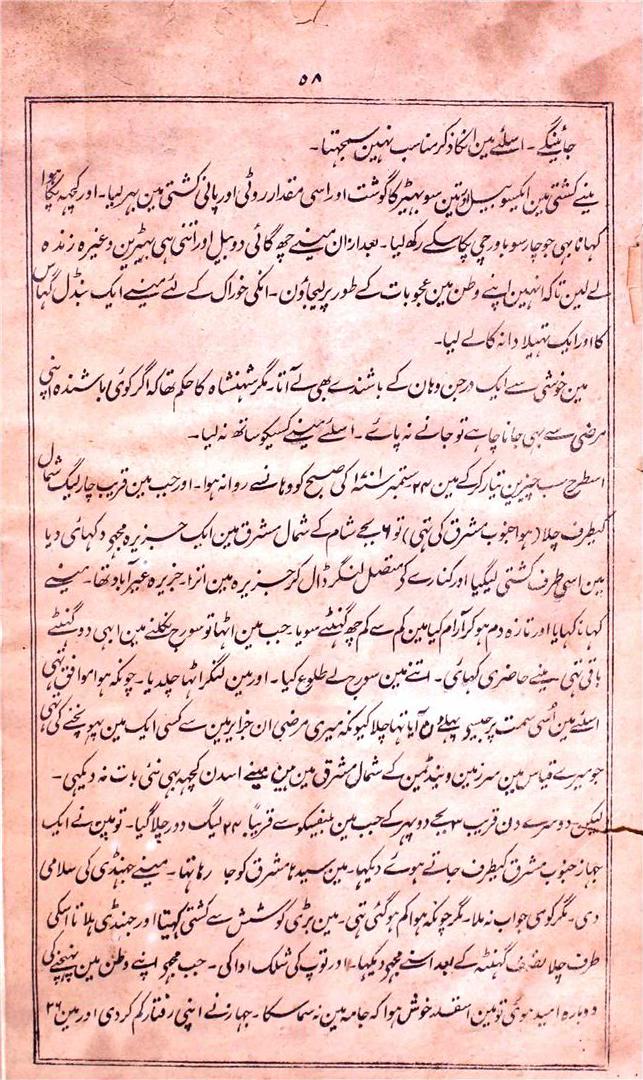 ۵۸
جائینگے۔ اسلئے مین انکا ذکر مناسب نہین سمجھتا۔
مینے کشتی مین ایکسو بیل اور تین سو بہیڑ کا گوشت اور اسی مقدار روٹی اور پانی کشتی مین بہر لیا۔ اور کچہہ پکا ہوا
کہانا بہی جو چار سو باورچی پکا سکے رکہہ لیا۔ بعد ازان مینے چھہ گائی دو بیل اور اتنی ہی بہیڑین وغیرہ زندہ
لے لین تاکہ انہین اپنے وطن مین عجوبات کے طور پر لیجاؤن۔ انکی خوراک کے لئے مینے ایک بنڈل گہاس
کا اور ایک تہیلا دانہ کا لے لیا۔
مین خوشی سے ایک درجن وہان کے باشندے بھی لے آتا۔ مگر شہنشاہ کا حکم تھا کہ اگر کوئی باشندہ اپنی
مرضی سے بہی جانا چاہے تو جانے نہ پائے۔ اسلئے مینے کسیکو ساتھ نہ لیا۔
اسطرح سب چیزین تیار کرکے مین ۲۴ ستمبر ۱۷۰۱ء کی صبح کو وہانسے روانہ ہوا۔ اور جب مین قریب چار لیگ شمال
کیطرف چلا (ہوا جنوب مشرق کی تہی) تو ۶ بجے شام کے شمال مشرق مین ایک جزیرہ مجہو دکہائی دیا
مین اسی طرف کشتی لیگیا اور کنارے کے متصل لنگر ڈال کر جزیرہ مین اترا۔ جزیرہ غیر آباد تھا۔ مینے
کہانا کہایا اور تازہ دم ہو کر آرام کیا مین کم سے کم چھہ گہنٹے سویا۔ جب مین اٹہا تو سورج نکلنے مین ابہی دو گہنٹے
باقی تہی۔ مینے حاضری کہائی۔ اتنے مین سورج نے طلوع کیا۔ اور مین لنگر اٹہا چلدیا۔ چونکہ ہوا موافق تہی
اسلئے مین اُسی سمت پر جیسے پہلے دن آیا تہا چلا کیونکہ میری مرضی ان جزایر مین سے کسی ایک مین پہونچنے کی تہی
جو میرے قیاس مین سرزمین وینڈیمن کے شمال مشرق مین مینے اسدن کچہہ بہی نئی بات نہ دیکہی۔
لیکن دوسرے دن قریب ۳ بجے دوپہر کے جب مین بلیفیکو سے قریباً ۲۴ لیگ دور چلا گیا۔ تو مین نے ایک
جہاز جنوب مشرق کیطرف جاتے ہوئے دیکہا۔ مین سیدہا مشرق کو جا رہا تہا۔ مینے جہنڈی کی سلامی
دی۔ مگر کوئی جواب نہ ملا۔ مگر چونکہ ہوا کم ہوگئی تہی۔ مین بڑی کوشش سے کشتی کہیتا اور جہنڈی ہلاتا اسکی
طرف چلا نصف گہنٹہ کے بعد اسنے مجہو دیکہا۔ اور توپ کی شلک ادا کی۔ جب مجہو اپنے وطن مین پہنچنے کی
دوبارہ امید ہوئی تو مین اسقدر خوش ہوا کہ جامہ مین نہ سما سکا۔ جہاز نے اپنی رفتار کم کردی اور مین ۲۶